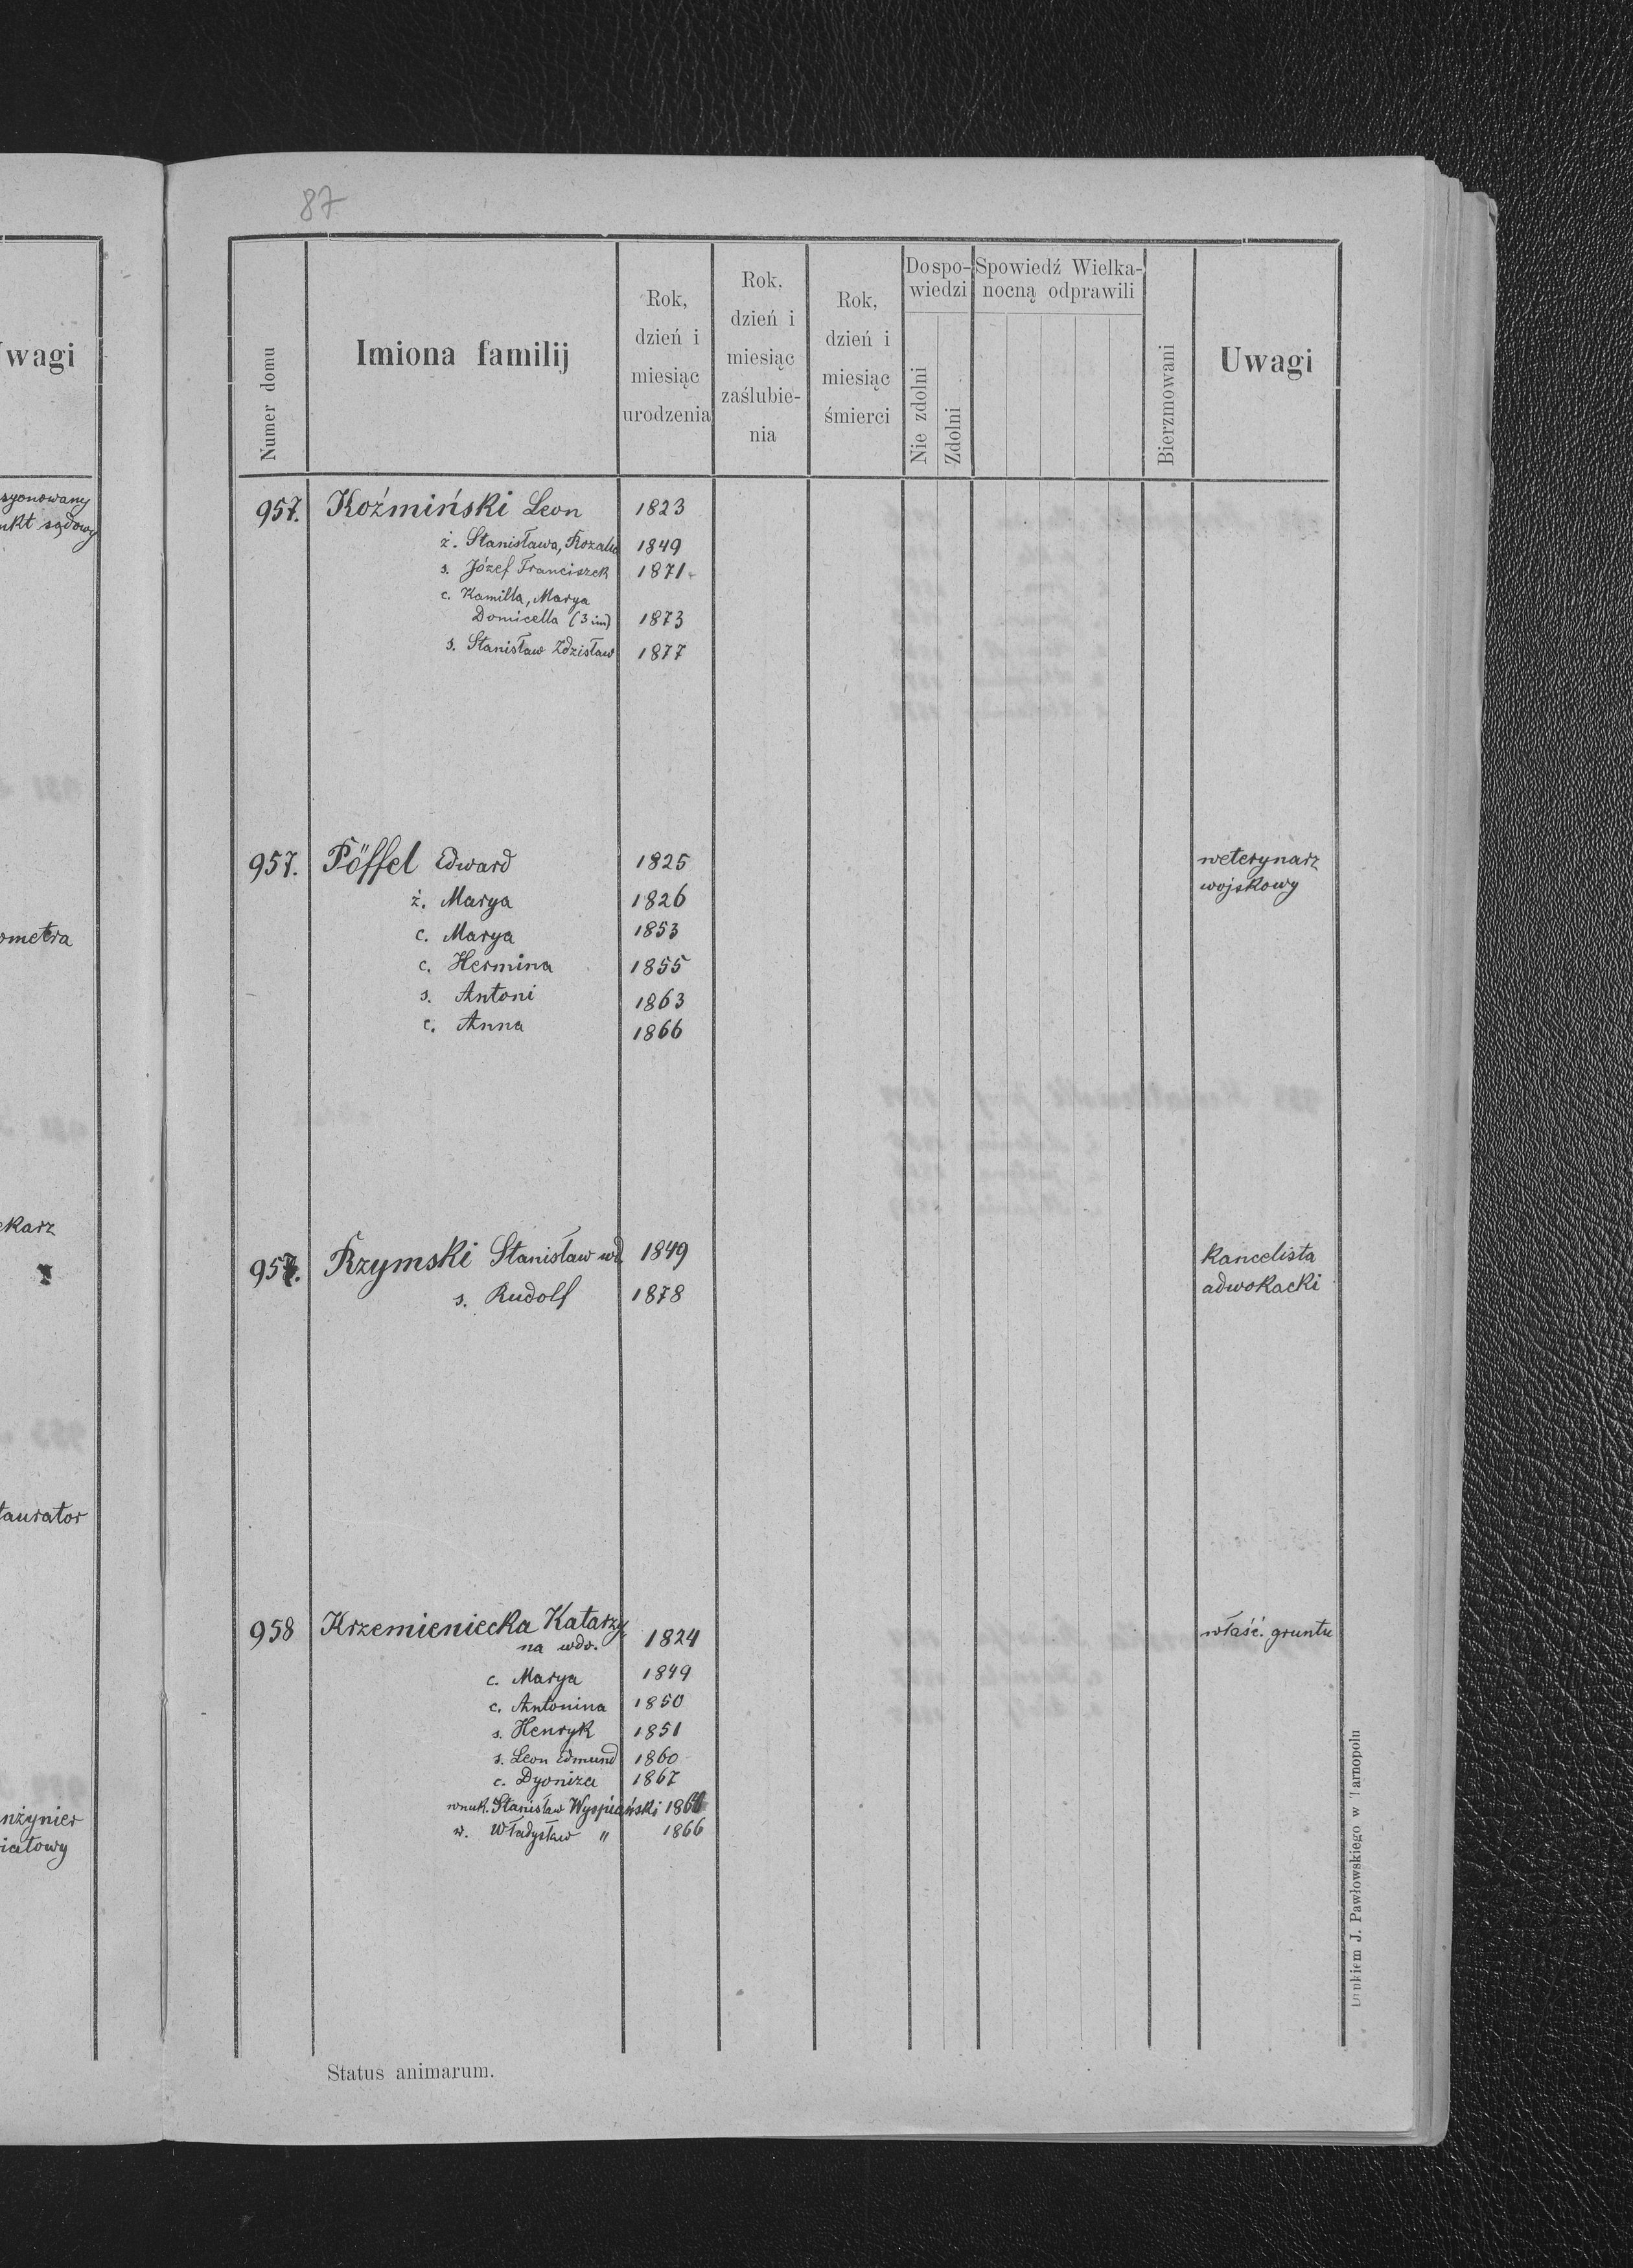 87
Uwagi
Numer domu
Imiona familij
Rok,
dzień i
miesiąc
urodzenia
Rok,
dzień i
miesiąc
zaślubie-
nia
Rok,
dzień i
miesiąc
śmierci
Do spo-
wiedzi
Nie zdolni
Zdolni
Spowiedź Wielka-
nocną odprawili
Bierzmowani
Uwagi
syonowany
nkt sądowy
957. Koźmiński Leon 1823
ż. Stanisława, Rozalia 1849
s. Józef Franciszek 1871
c. Kamilla, Marya
Domicella (3 im) 1873
s. Stanisław Zdzisław 1877
957. Pöffel Edward 1825 weterynarz
wojskowy
ż. Marya 1826
c. Marya 1853
ometra
c. Hermina 1855
s. Antoni 1863
c. Anna 1866
ekarz
957. Rzymski Stanisław wd. 1849 kancelista
adwokacki
s. Rudolf 1878
taurator
958 Krzemieniecka Katarzy-
na wdw. 1824 właść. gruntu
c. Marya 1849
c. Antonina 1850
s. Henryk 1851
s. Leon Edmund 1860
c. Dyoniza 1867
wnuk. Stanisław Wyspiański
w. Władysław " 1866
nżynier
iatowy
Status animarum.
Drukiem J. Pawłowskiego w Tarnopolu